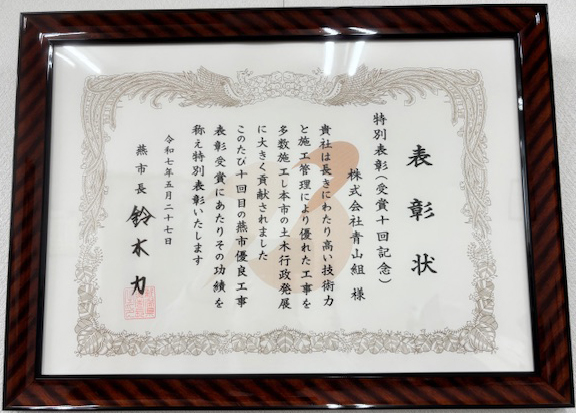 表彰状
特別表彰(受賞十回記念)
株式会社青山組 様
貴社は長きにわたり高い技術力
と施工管理により優れた工事を
多数施工し本市の土木行政発展
に大きく貢献されました
このたび十回目の燕市優良工事
表彰受賞にあたりその功績を
称え特別表彰いたします
令和七年五月二十七日
燕市長 鈴木力